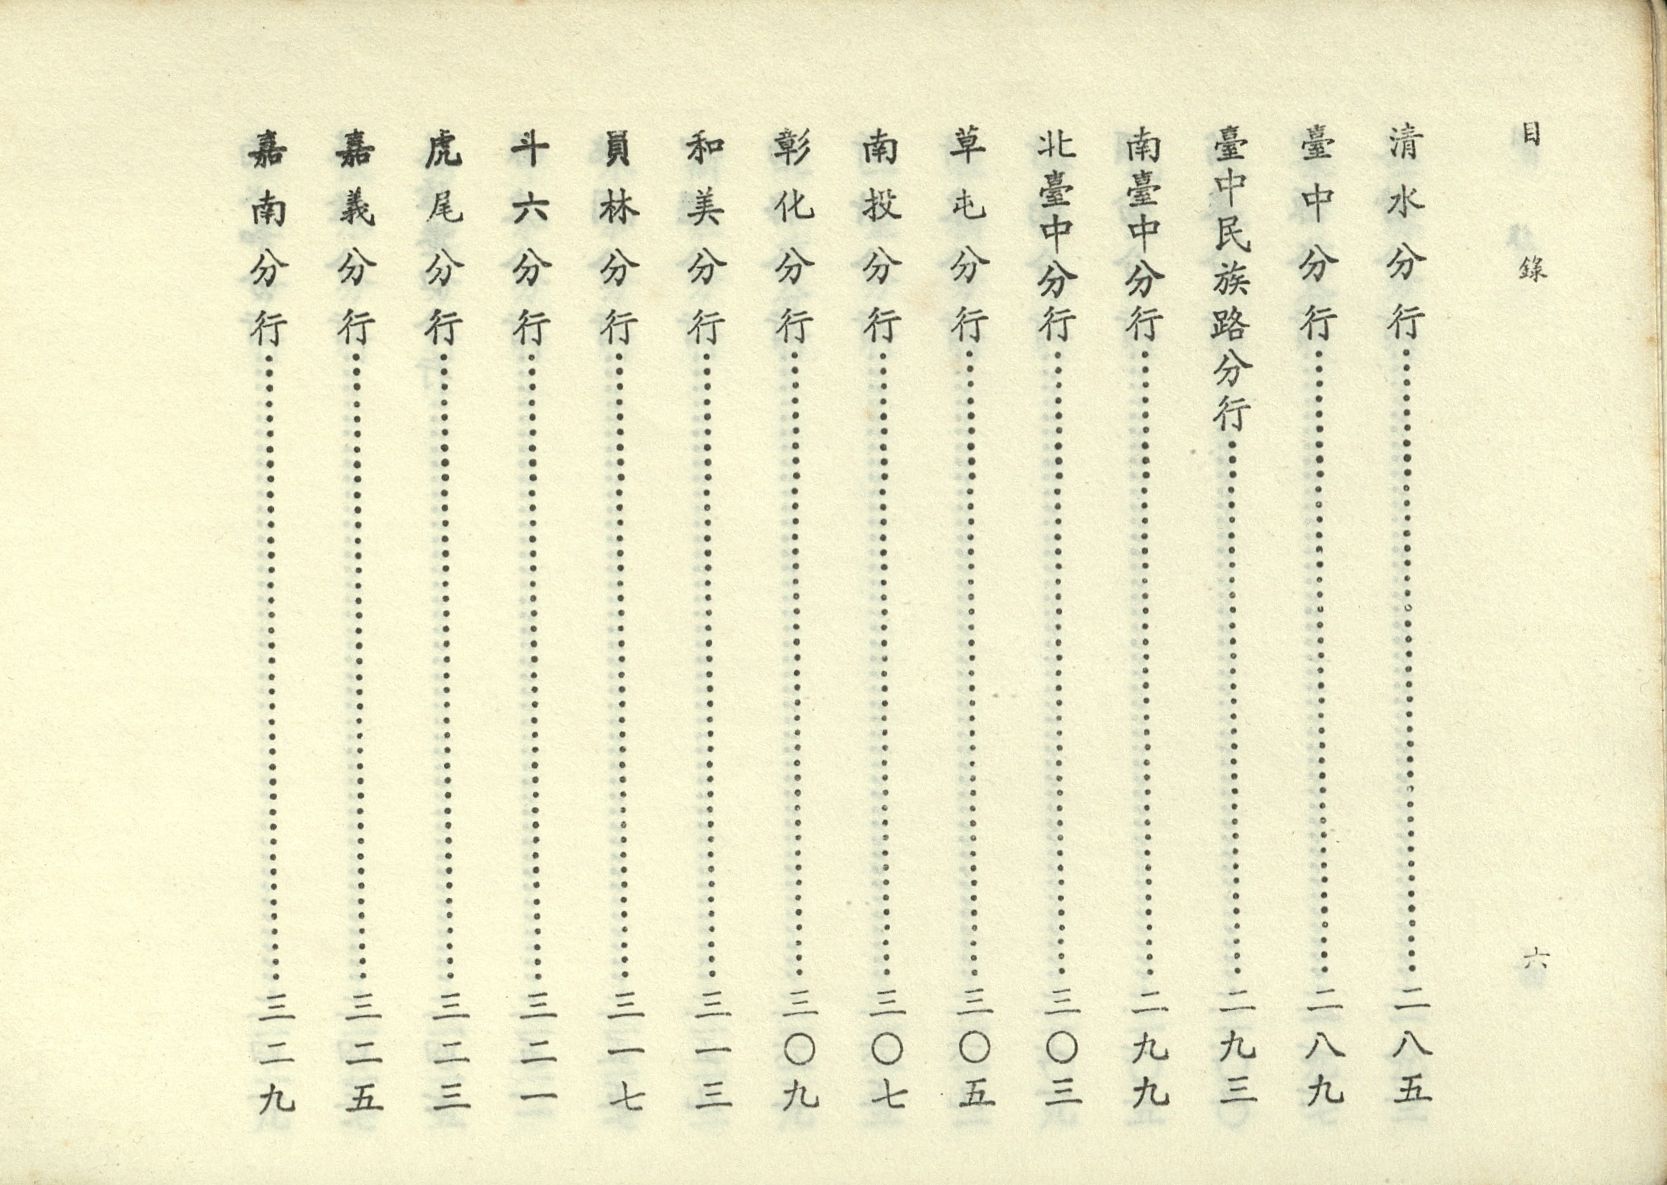 目錄 六
清水分行……二八五
臺中分行……二八九
臺中民族路分行……二九三
南臺中分行……二九九
北臺中分行……三〇三
草屯分行……三〇五
南投分行……三〇七
彰化分行……三〇九
和美分行……三一三
員林分行……三一七
斗六分行……三二一
虎尾分行……三二三
嘉義分行……三二五
嘉南分行……三二九